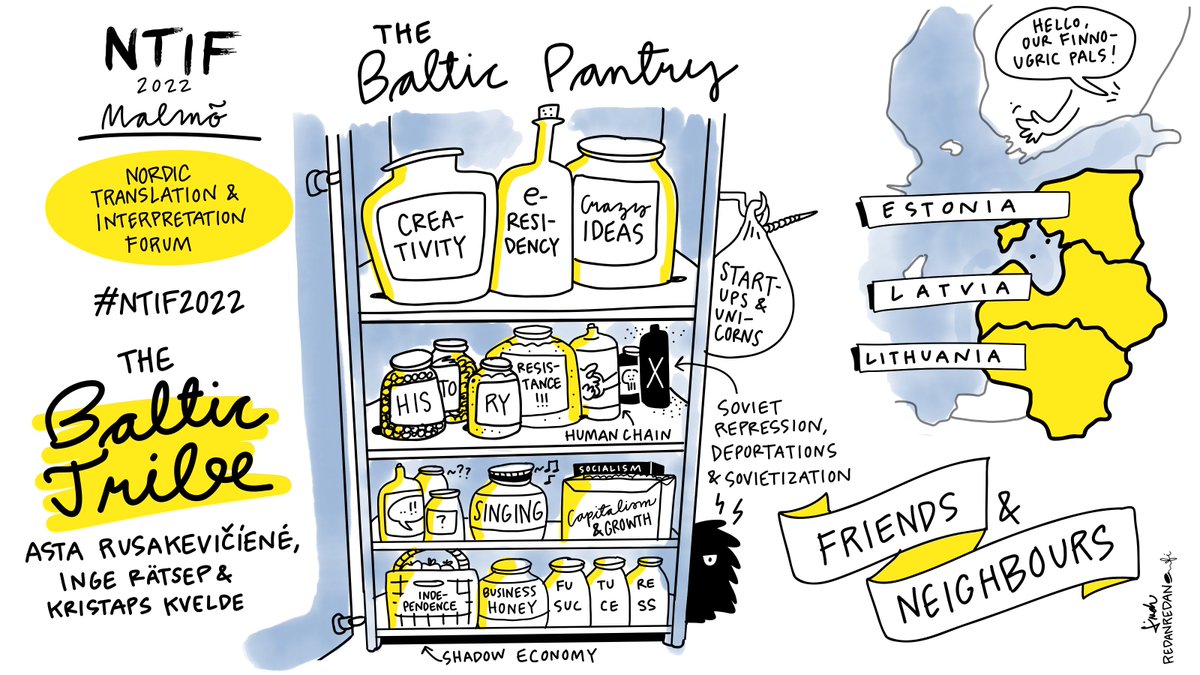 NTIF
2022
Malmõ
NORDIC
TRANSLATION &
INTERPRETATION
FORUM
#NTIF2022
THE
Baltic
Tribe
ASTA RUSAKEVIČÍENÉ,
INGE RÄTSEP &
KRISTAPS KVELDE
THE
Baltic Pantry
CREA-
TIVITY
e-
RESI-
DENCY
Crazy
IDEAS
START-
UPS &
UNI-
CORNS
HIS
TO
RY
RESIS-
TANCE
!!!
!!!
X
HUMAN CHAIN
SOVIET
REPRESSION,
DEPORTATIONS
& SOVIETIZATION
!!
~??
?
SINGING
SOCIALISM
Capitalism
& GROWTH
INDE-
PENDENCE
BUSINESS
HONEY
FU
SUC
TU
CE
RE
SS
SHADOW ECONOMY
HELLO,
OUR FINNO-
UGRIC PALS!
ESTONIA
LATVIA
LITHUANIA
FRIENDS &
NEIGHBOURS
REDANREDAN.fi